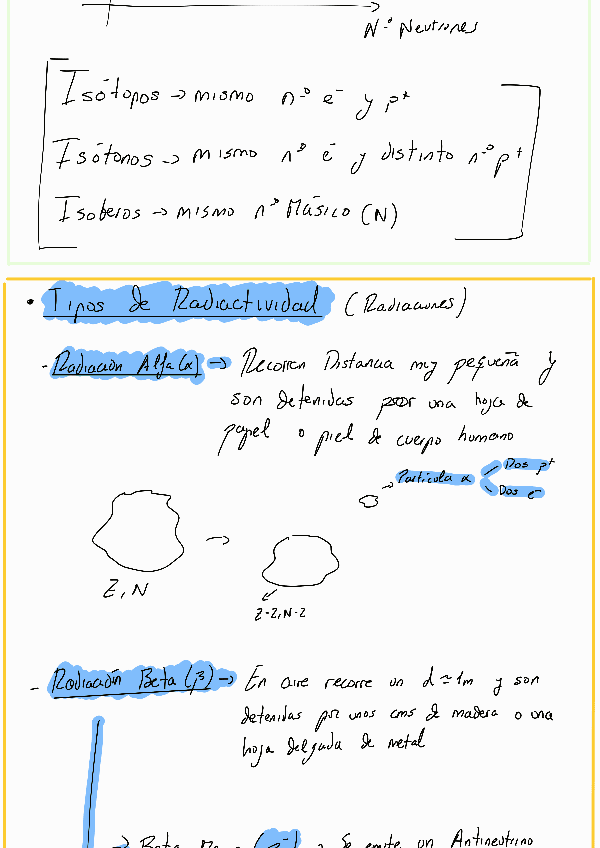 N.º Neutrones
Isótopos → mismo n.º e⁻ y p⁺
Isótonos → mismo n.º e⁻ y distinto n.º p⁺
Isoberos → mismo n.º Másico (N)
• Tipos de Radiactividad (Radiaciones)
- Radiación Alfa (α) → Recorren Distancia muy pequeña y
son detenidas por una hoja de
papel o piel de cuerpo humano
→ Partícula α Dos p⁺
Dos e⁻
→
Z, N
Z-2, N-2
- Radiación Beta (β) → En aire recorre un d ≃ 1m y son
detenidas por unos cms de madera o una
hoja delgada de metal
→ Beta (β⁻) → Se emite un Antineutrino